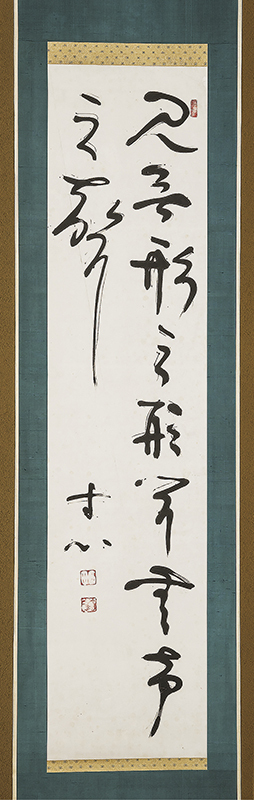 見无形之形聞無声
之聲
寸心